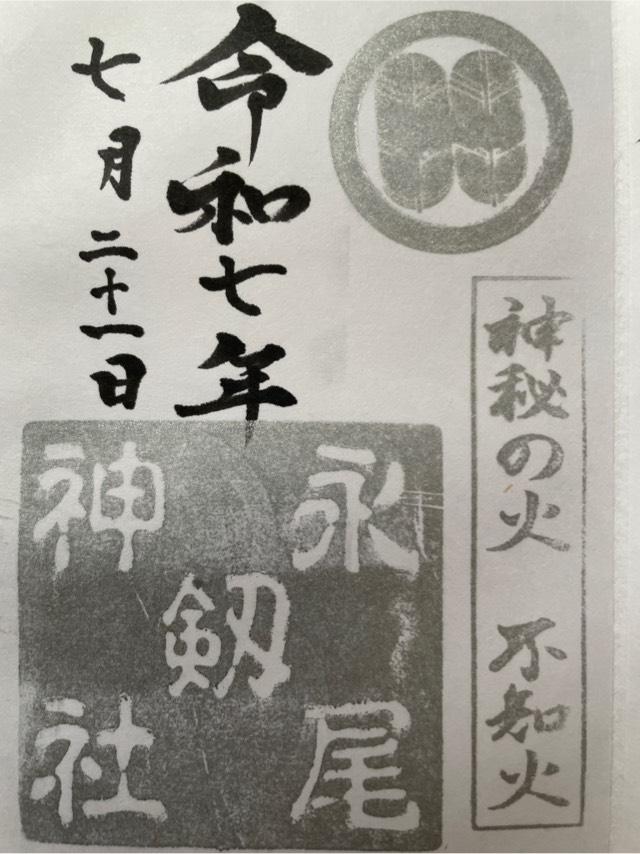 神秘の火 不知火
令和七年
七月二十一日
永尾
剱
神社